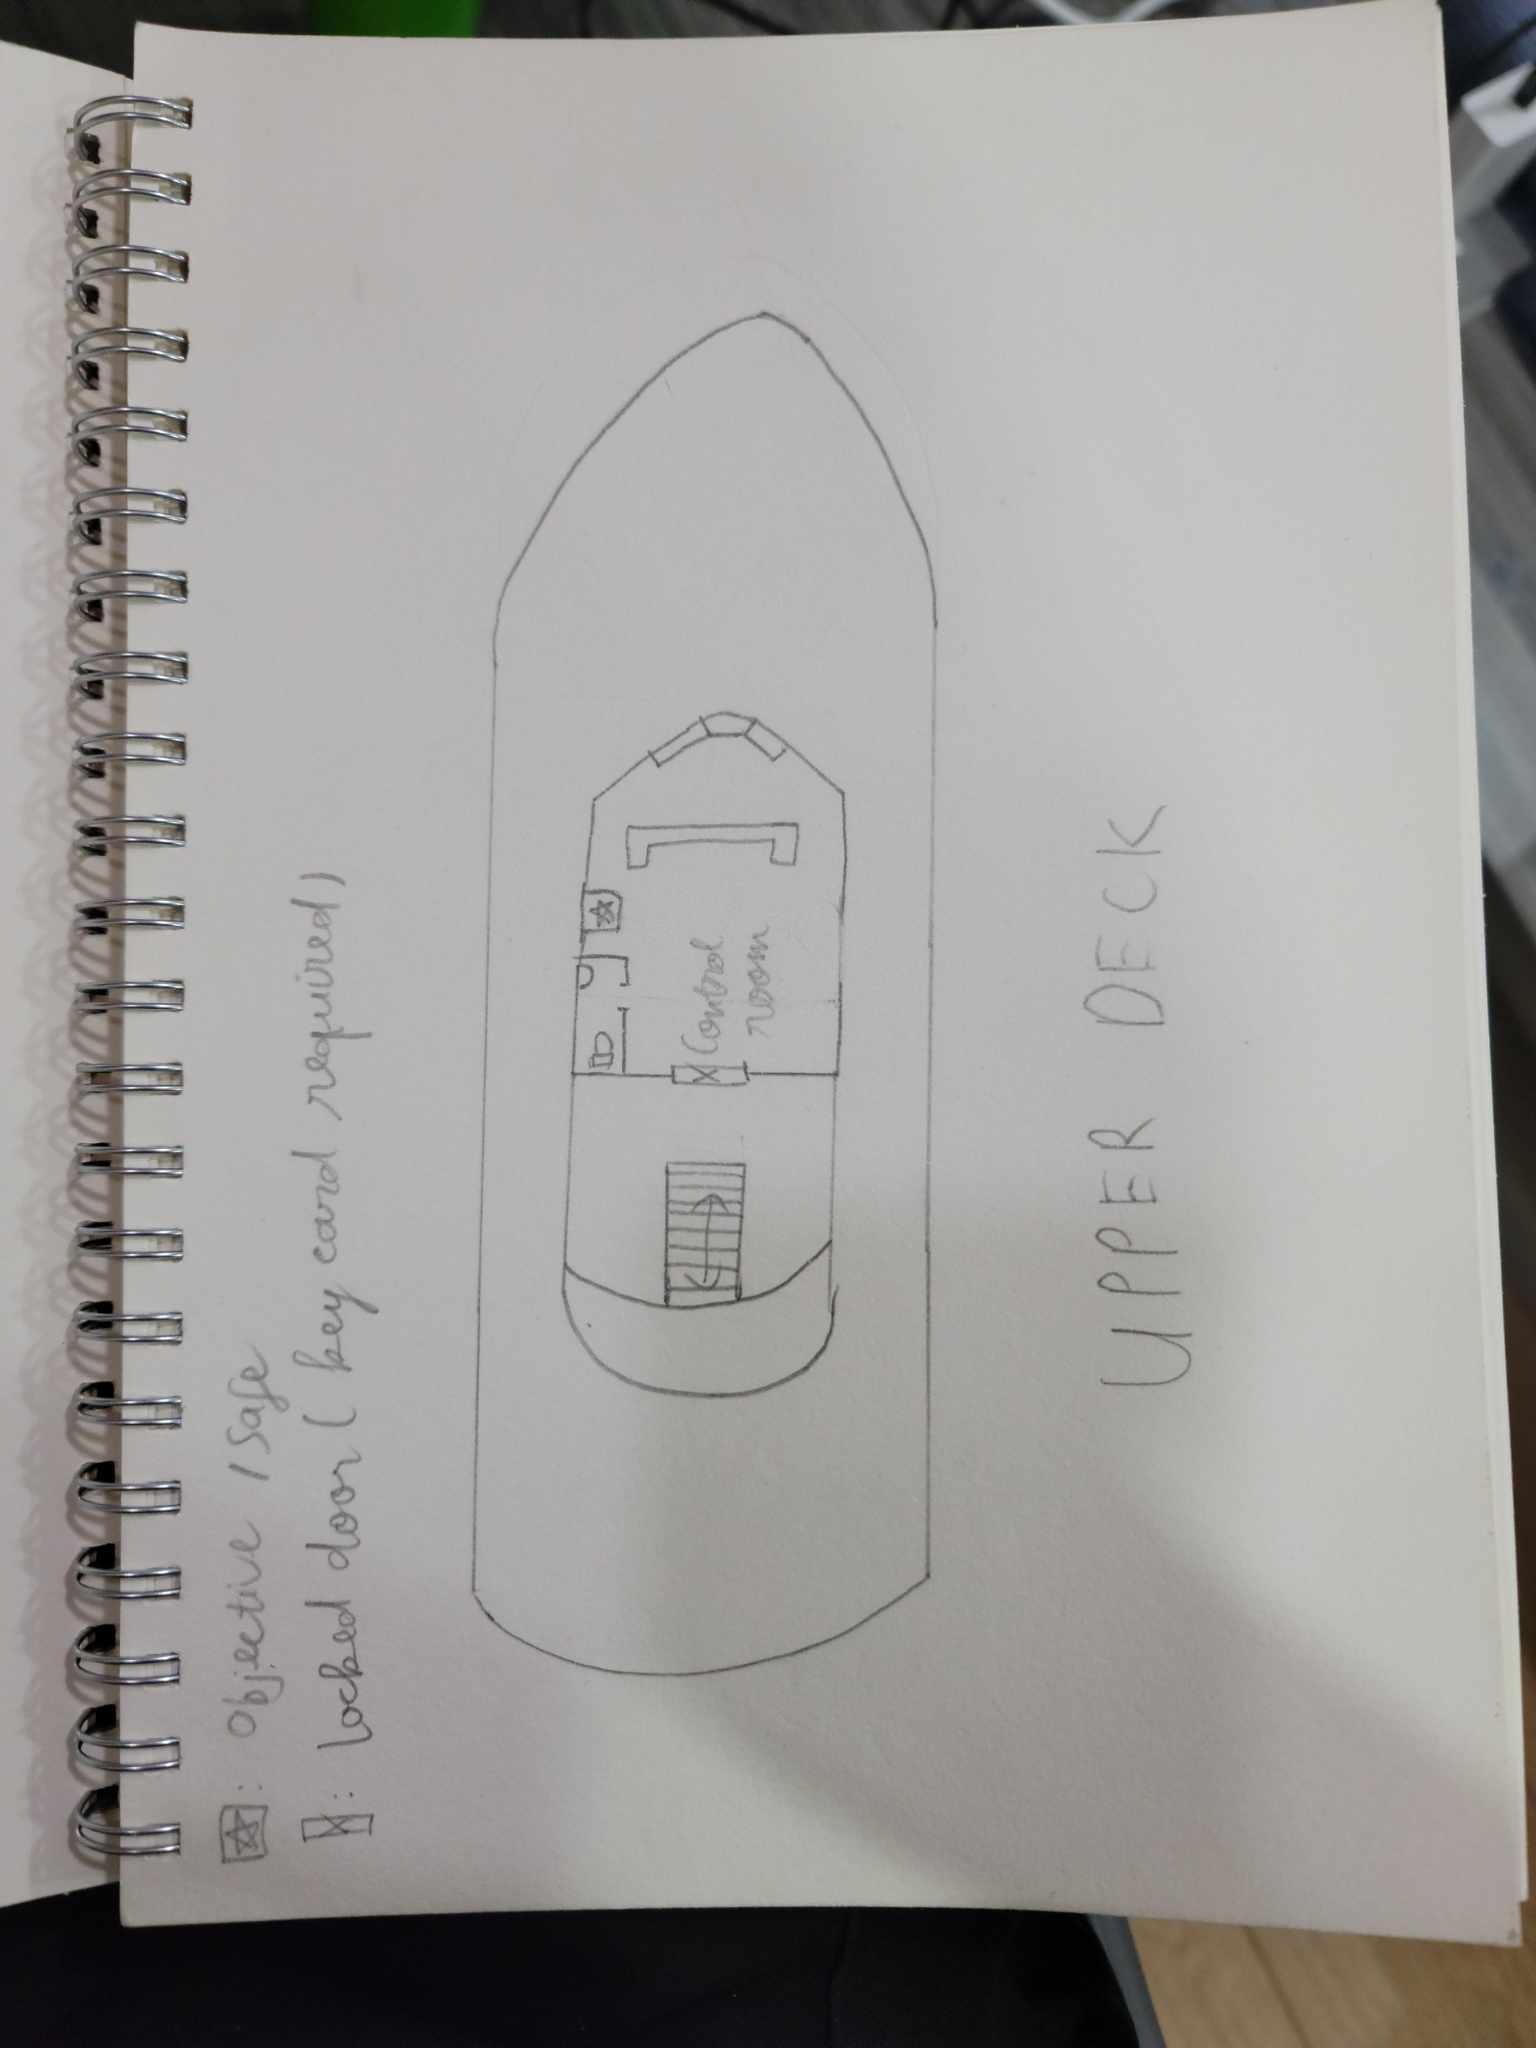 : Objective / Safe
: locked door ( key card required )
Control
room
UPPER DECK